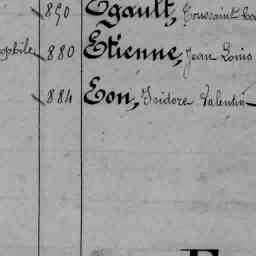 1890 Egault, Toussaint
1880 Etienne, Jean Louis
1884 Eon, Isidore Valentin